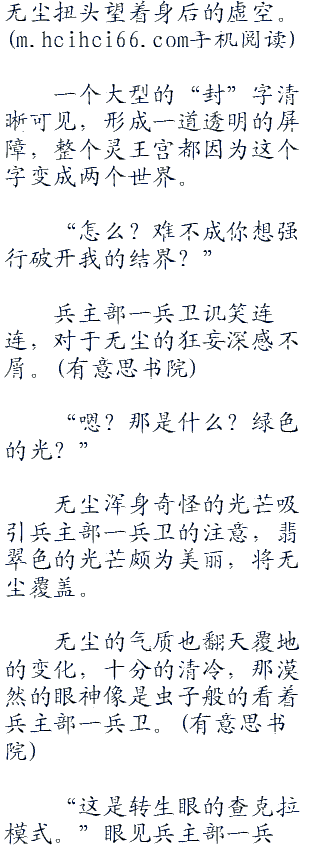 无尘扭头望着身后的虚空。
(m.hcihci66.com手机阅读)
一个大型的“封”字清
晰可见，形成一道透明的屏
障，整个灵王宫都因为这个
字变成两个世界。
“怎么？难不成你想强
行破开我的结界？”
兵主部一兵卫讥笑连
连，对于无尘的狂妄深感不
屑。(有意思书院)
“嗯？那是什么？绿色
的光？”
无尘浑身奇怪的光芒吸
引兵主部一兵卫的注意，翡
翠色的光芒颇为美丽，将无
尘覆盖。
无尘的气质也翻天覆地
的变化，十分的清冷，那漠
然的眼神像是虫子般的看着
兵主部一兵卫。(有意思书
院)
“这是转生眼的查克拉
模式。”眼见兵主部一兵